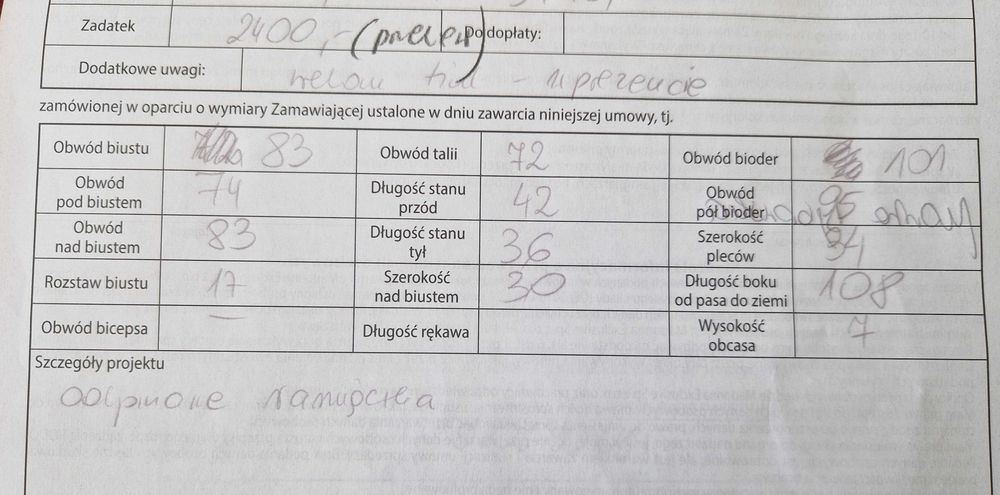 Zadatek 2400,- (przelew) Do dopłaty:
Dodatkowe uwagi: welon tiul - w prezencie
zamówionej w oparciu o wymiary Zamawiającej ustalone w dniu zawarcia niniejszej umowy, tj.
Obwód biustu 83 Obwód talii 72 Obwód bioder 101
Obwód pod biustem 74 Długość stanu przód 42 Obwód pół bioder 95
Obwód nad biustem 83 Długość stanu tył 36 Szerokość pleców 34
Rozstaw biustu 17 Szerokość nad biustem 30 Długość boku od pasa do ziemi 108
Obwód bicepsa — Długość rękawa Wysokość obcasa 7
Szczegóły projektu
odpinane ramiączka